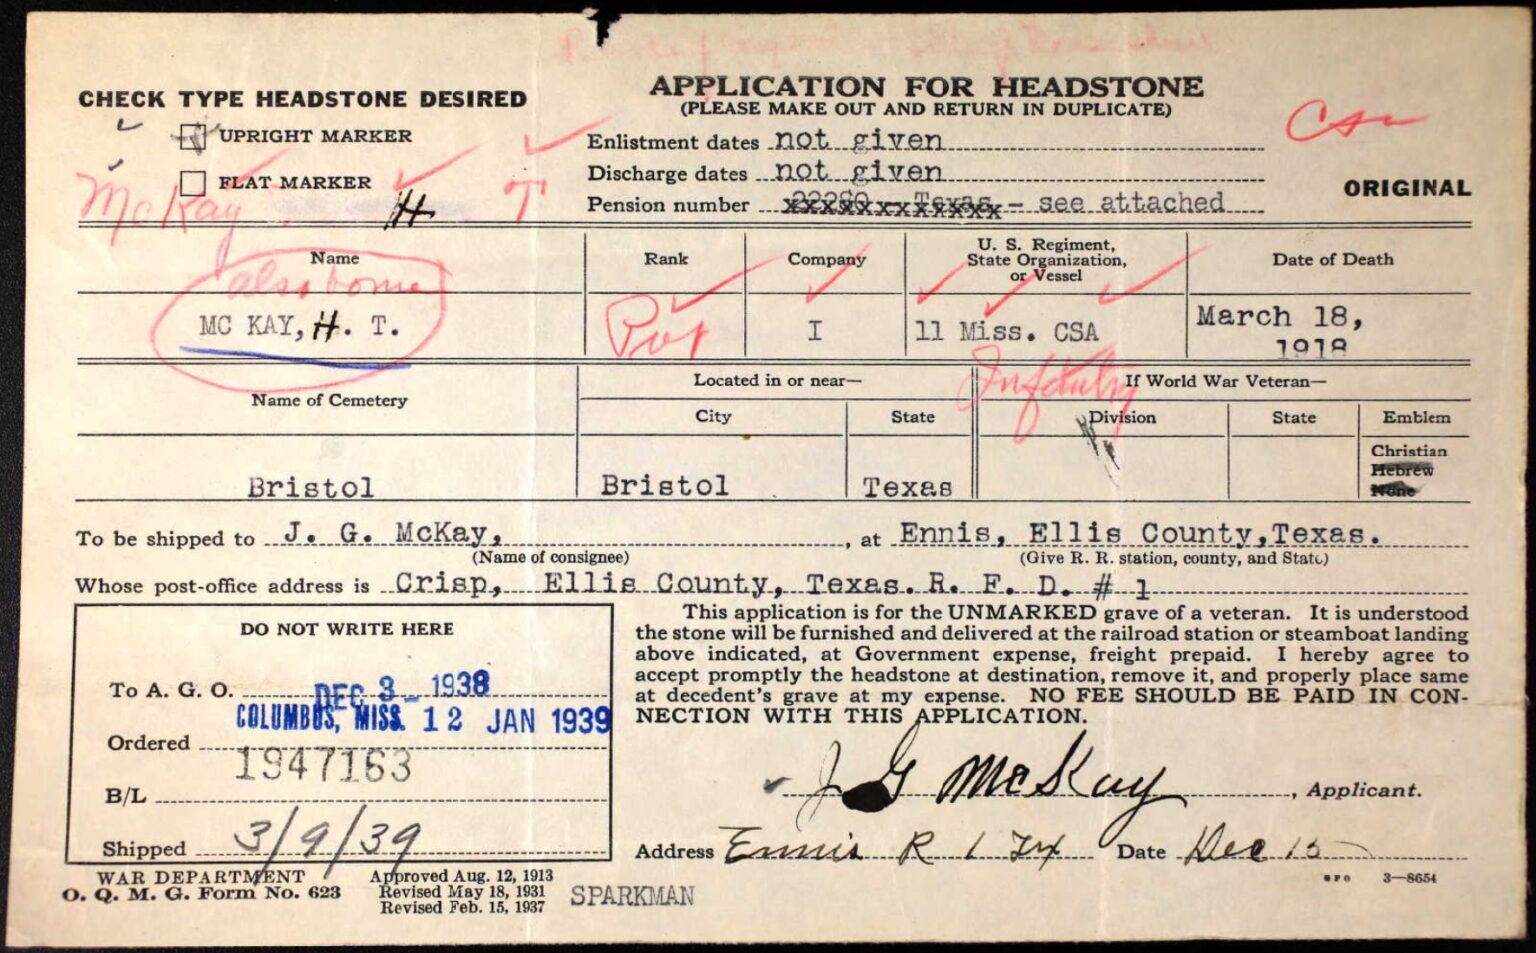 CHECK TYPE HEADSTONE DESIRED
UPRIGHT MARKER
FLAT MARKER
McKay H T
APPLICATION FOR HEADSTONE
(PLEASE MAKE OUT AND RETURN IN DUPLICATE)
Enlistment dates not given
Discharge dates not given
Pension number 22280 - Texas - see attached
CSA
ORIGINAL
Name
Rank
Company
U. S. Regiment,
State Organization,
or Vessel
Date of Death
also borne
MC KAY, H. T.
Pvt
I
11 Miss. CSA
March 18,
1918
Infantry
Name of Cemetery
Located in or near—
If World War Veteran—
City
State
Division
State
Emblem
Christian
Hebrew
None
Bristol
Bristol
Texas
To be shipped to J. G. McKay, , at Ennis, Ellis County, Texas.
(Name of consignee) (Give R. R. station, county, and State)
Whose post-office address is Crisp, Ellis County, Texas. R. F. D. # 1
DO NOT WRITE HERE
To A. G. O. DEC 3 - 1938
COLUMBUS, MISS. 12 JAN 1939
Ordered
1947163
B/L
Shipped 3/9/39
This application is for the UNMARKED grave of a veteran. It is understood
the stone will be furnished and delivered at the railroad station or steamboat landing
above indicated, at Government expense, freight prepaid. I hereby agree to
accept promptly the headstone at destination, remove it, and properly place same
at decedent's grave at my expense. NO FEE SHOULD BE PAID IN CON-
NECTION WITH THIS APPLICATION.
J G McKay, Applicant.
Address Ennis R 1 Tex Date Dec 15
WAR DEPARTMENT
O. Q. M. G. Form No. 623
Approved Aug. 12, 1913
Revised May 18, 1931
Revised Feb. 15, 1937
SPARKMAN
GPO 3—8654